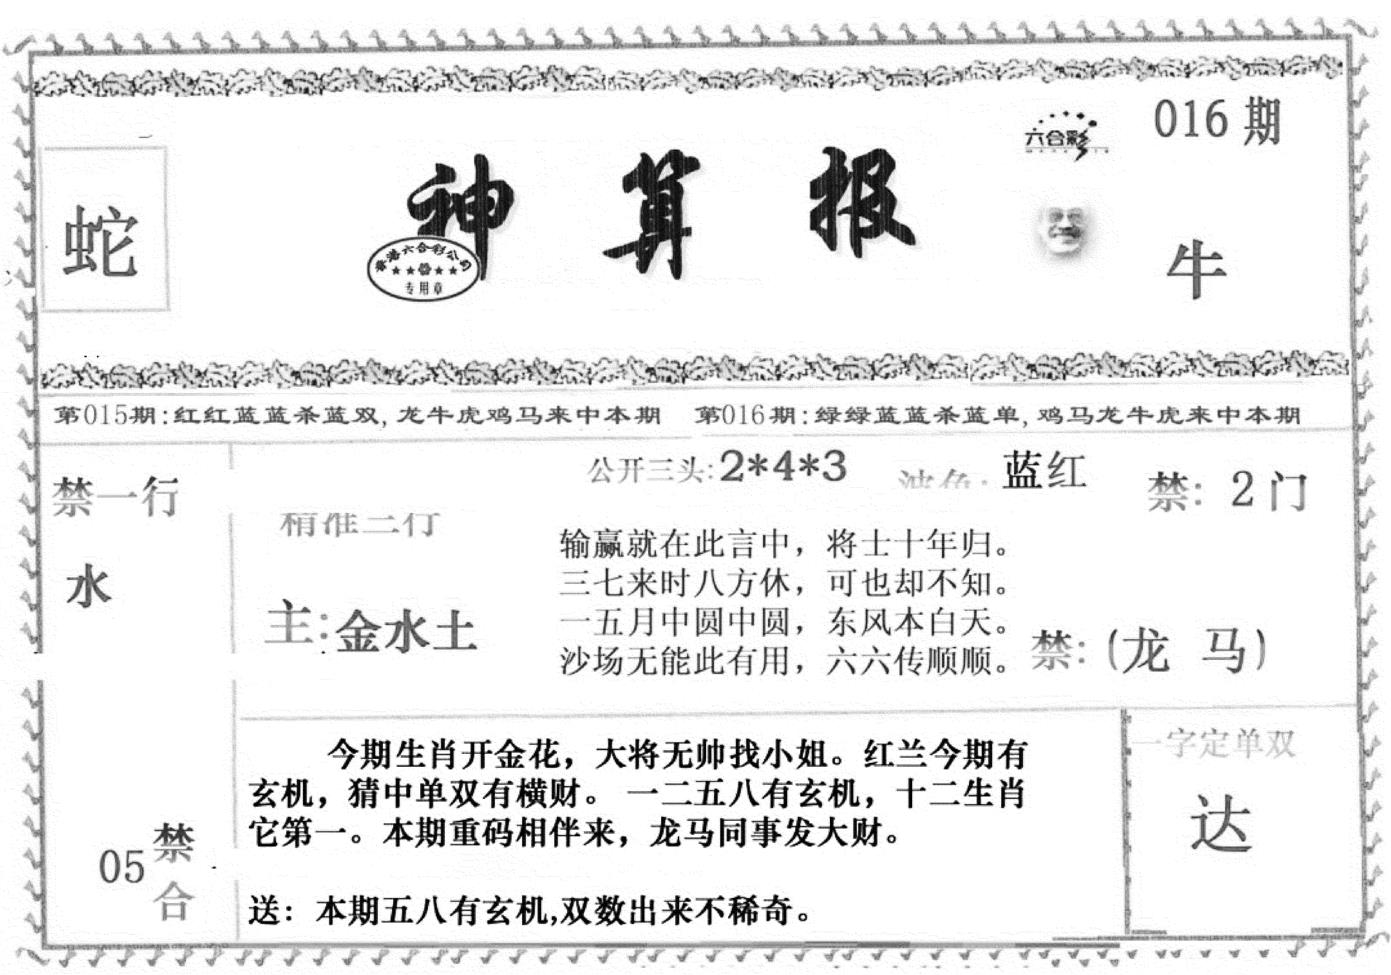 016期
六合彩
神算报
蛇
香港六合彩公司
专用章
牛
第015期:红红蓝蓝杀蓝双,龙牛虎鸡马来中本期 第016期:绿绿蓝蓝杀蓝单,鸡马龙牛虎来中本期
公开三头:2*4*3 波色: 蓝红 禁: 2门
禁一行
水
精准三行
主:金水土
输赢就在此言中，将士十年归。
三七来时八方休，可也却不知。
一五月中圆中圆，东风本白天。
沙场无能此有用，六六传顺顺。
禁:(龙 马)
今期生肖开金花，大将无帅找小姐。红兰今期有
玄机，猜中单双有横财。 一二五八有玄机，十二生肖
它第一。本期重码相伴来，龙马同事发大财。
送：本期五八有玄机,双数出来不稀奇。
05
禁
合
一字定单双
达